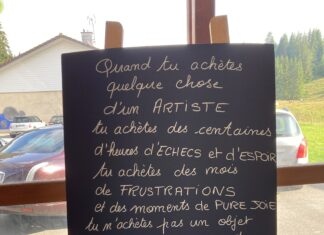 Quand tu achètes
quelque chose
d'un ARTISTE
tu achètes des centaines
d'heures d'ECHECS et d'ESPOIR
tu achètes des mois
de FRUSTRATIONS
et des moments de PURE JOIE
tu n'achètes pas un objet